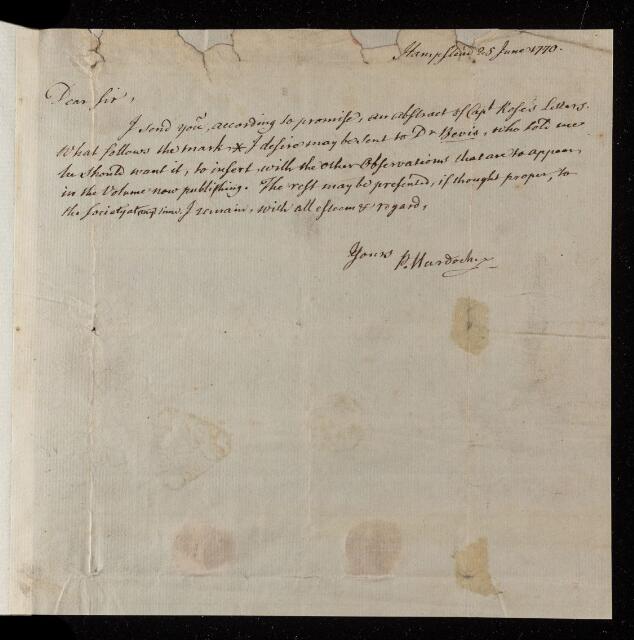 Hampstead 25 June 1770.
Dear Sir,
I send you, according to promise, an abstract of Capt Rose's Letters.
What follows the mark ✳ I desire may be sent to Dr Bevis, who told me
he should want it, to insert with the other Observations that are to appear
in the Volume now publishing. The rest may be presented, if thought proper, to
the Society at any time. I remain, with all esteem & regard,
Yours P. Murdoch